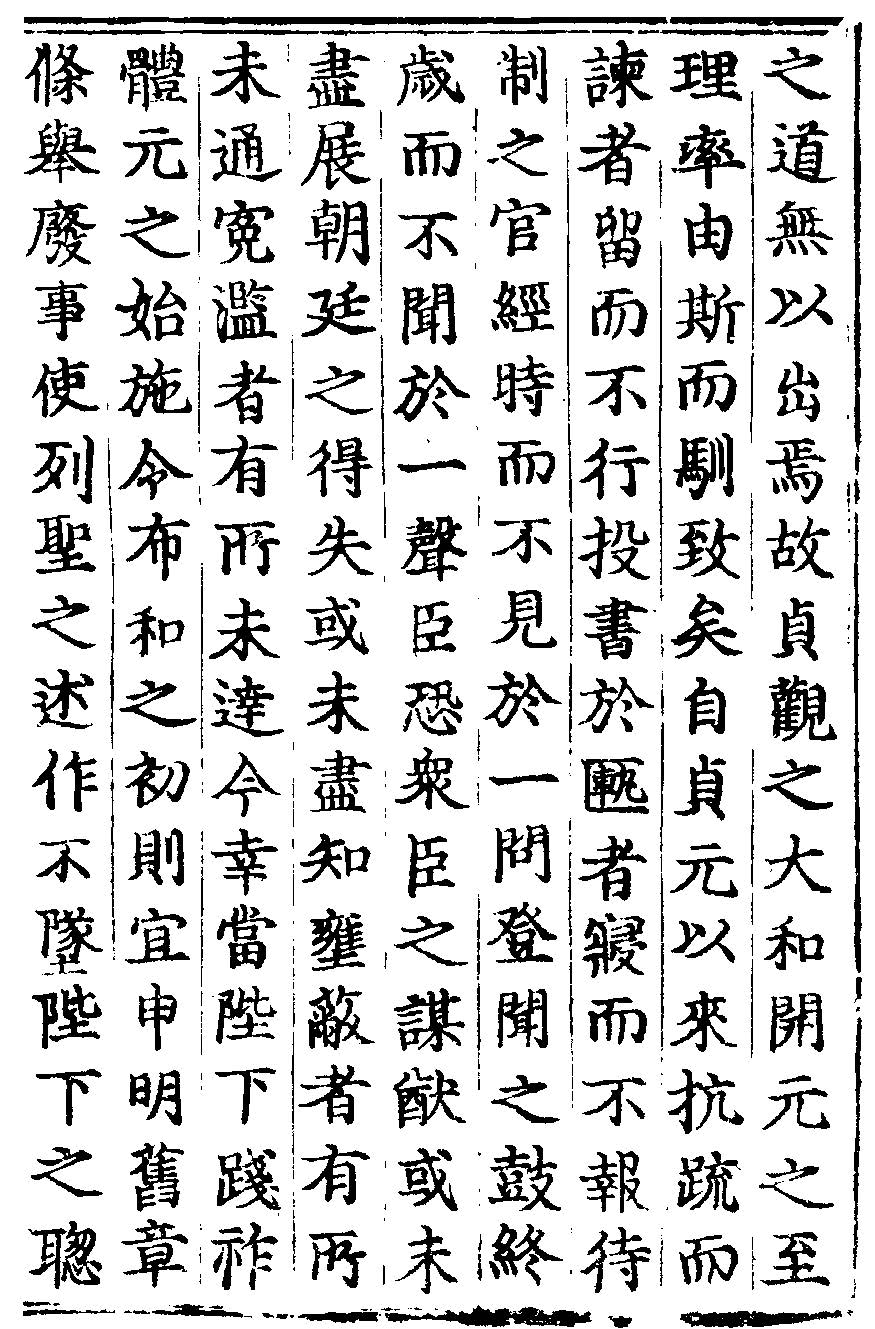 之道無以出焉故貞觀之大和開元之至
理率由斯而馴致矣自貞元以來抗疏而
諫者留而不行投書於匭者寢而不報待
制之官經時而不見於一問登聞之鼓終
歲而不聞於一聲臣恐衆臣之謀猷或未
盡展朝廷之得失或未盡知壅蔽者有所
未通寃濫者有所未達今幸當陛下踐祚
體元之始施令布和之初則宜申明舊章
條舉廢事使列聖之述作不墜陛下之聰